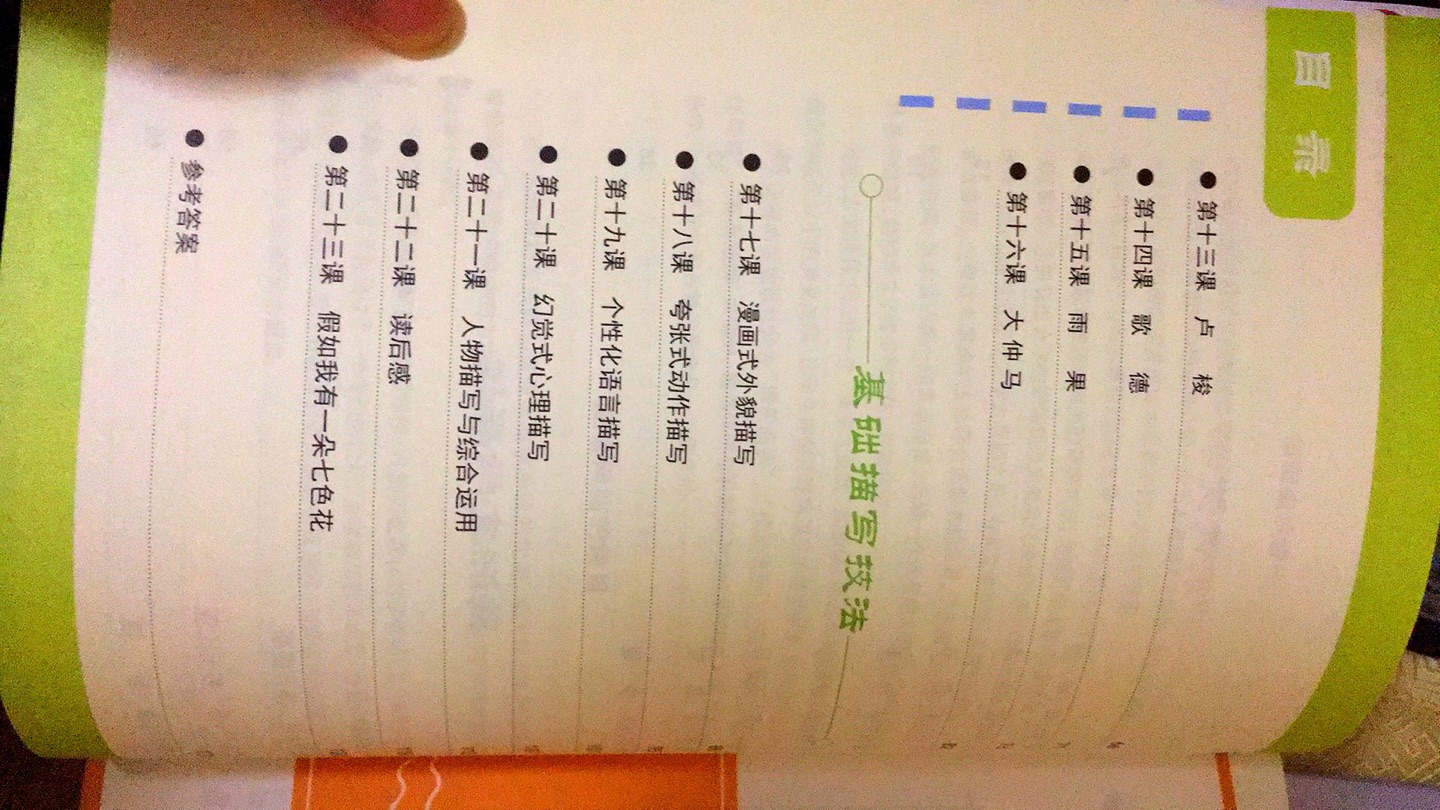 目录
第十三课 卢梭
第十四课 歌德
第十五课 雨果
第十六课 大仲马
基础描写技法
第十七课 漫画式外貌描写
第十八课 夸张式动作描写
第十九课 个性化语言描写
第二十课 幻觉式心理描写
第二十一课 人物描写与综合运用
第二十二课 读后感
第二十三课 假如我有一朵七色花
参考答案